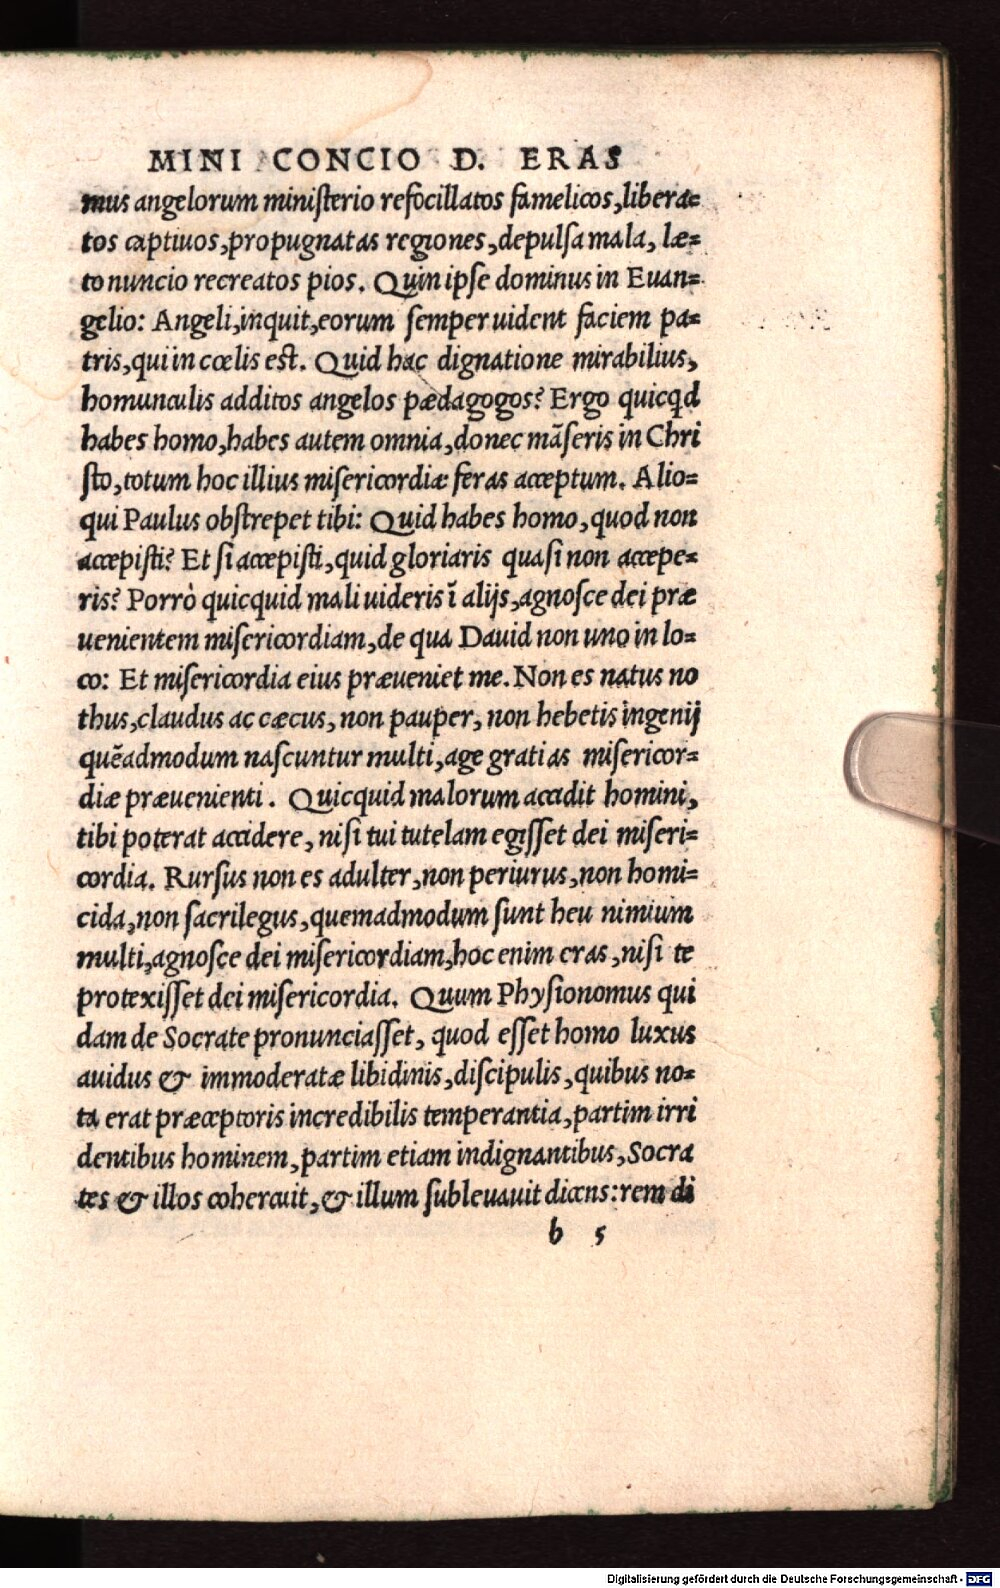 MINI CONCIO D. ERAS
mus angelorum ministerio refocillatos famelicos, libera=
tos captiuos, propugnatas regiones, depulsa mala, læ=
to nuncio recreatos pios. Quin ipse dominus in Euan=
gelio: Angeli, inquit, eorum semper uident faciem pa=
tris, qui in cœlis est. Quid hac dignatione mirabilius,
homunculis additos angelos pædagogos? Ergo quicqd
habes homo, habes autem omnia, donec mãseris in Chri
sto, totum hoc illius misericordiæ feras acceptum. Alio=
qui Paulus obstrepet tibi: Quid habes homo, quod non
accepisti? Et si accepisti, quid gloriaris quasi non accepe=
ris? Porrò quicquid mali uideris ĩ alijs, agnosce dei præ
uenientem misericordiam, de qua Dauid non uno in lo=
co: Et misericordia eius præueniet me. Non es natus no
thus, claudus ac cæcus, non pauper, non hebetis ingenij
quẽadmodum nascuntur multi, age gratias misericor=
diæ præuenienti. Quicquid malorum accidit homini,
tibi poterat accidere, nisi tui tutelam egisset dei miseri=
cordia. Rursus non es adulter, non periurus, non homi=
cida, non sacrilegus, quemadmodum sunt heu nimium
multi, agnosce dei misericordiam, hoc enim eras, nisi te
protexisset dei misericordia. Quum Physionomus qui
dam de Socrate pronunciasset, quod esset homo luxus
auidus & immoderatæ libidinis, discipulis, quibus no=
ta erat præceptoris incredibilis temperantia, partim irri
dentibus hominem, partim etiam indignantibus, Socra
tes & illos cohercuit, & illum subleuauit dicens: rem di
b 5
Digitalisierung gefördert durch die Deutsche Forschungsgemeinschaft - DFG